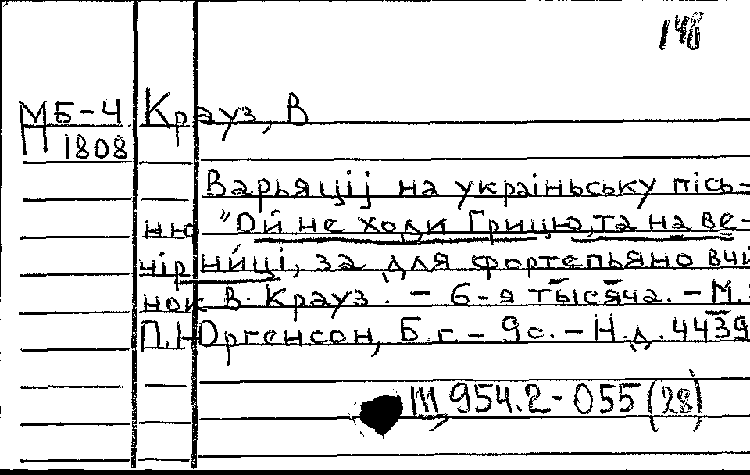 148
МБ-4 Крауз, В
П 1808
Варьяціј на україньську пісь=
ню "Ой не ходи Грицю, та на ве-
чірниці, за для фортепьяно вчи
нок В. Крауз. - 6-я тысяча. - М.:
П. Юргенсон, Б.г. - 9с. - Н.д. 4439
Ш 954.2-055(28)